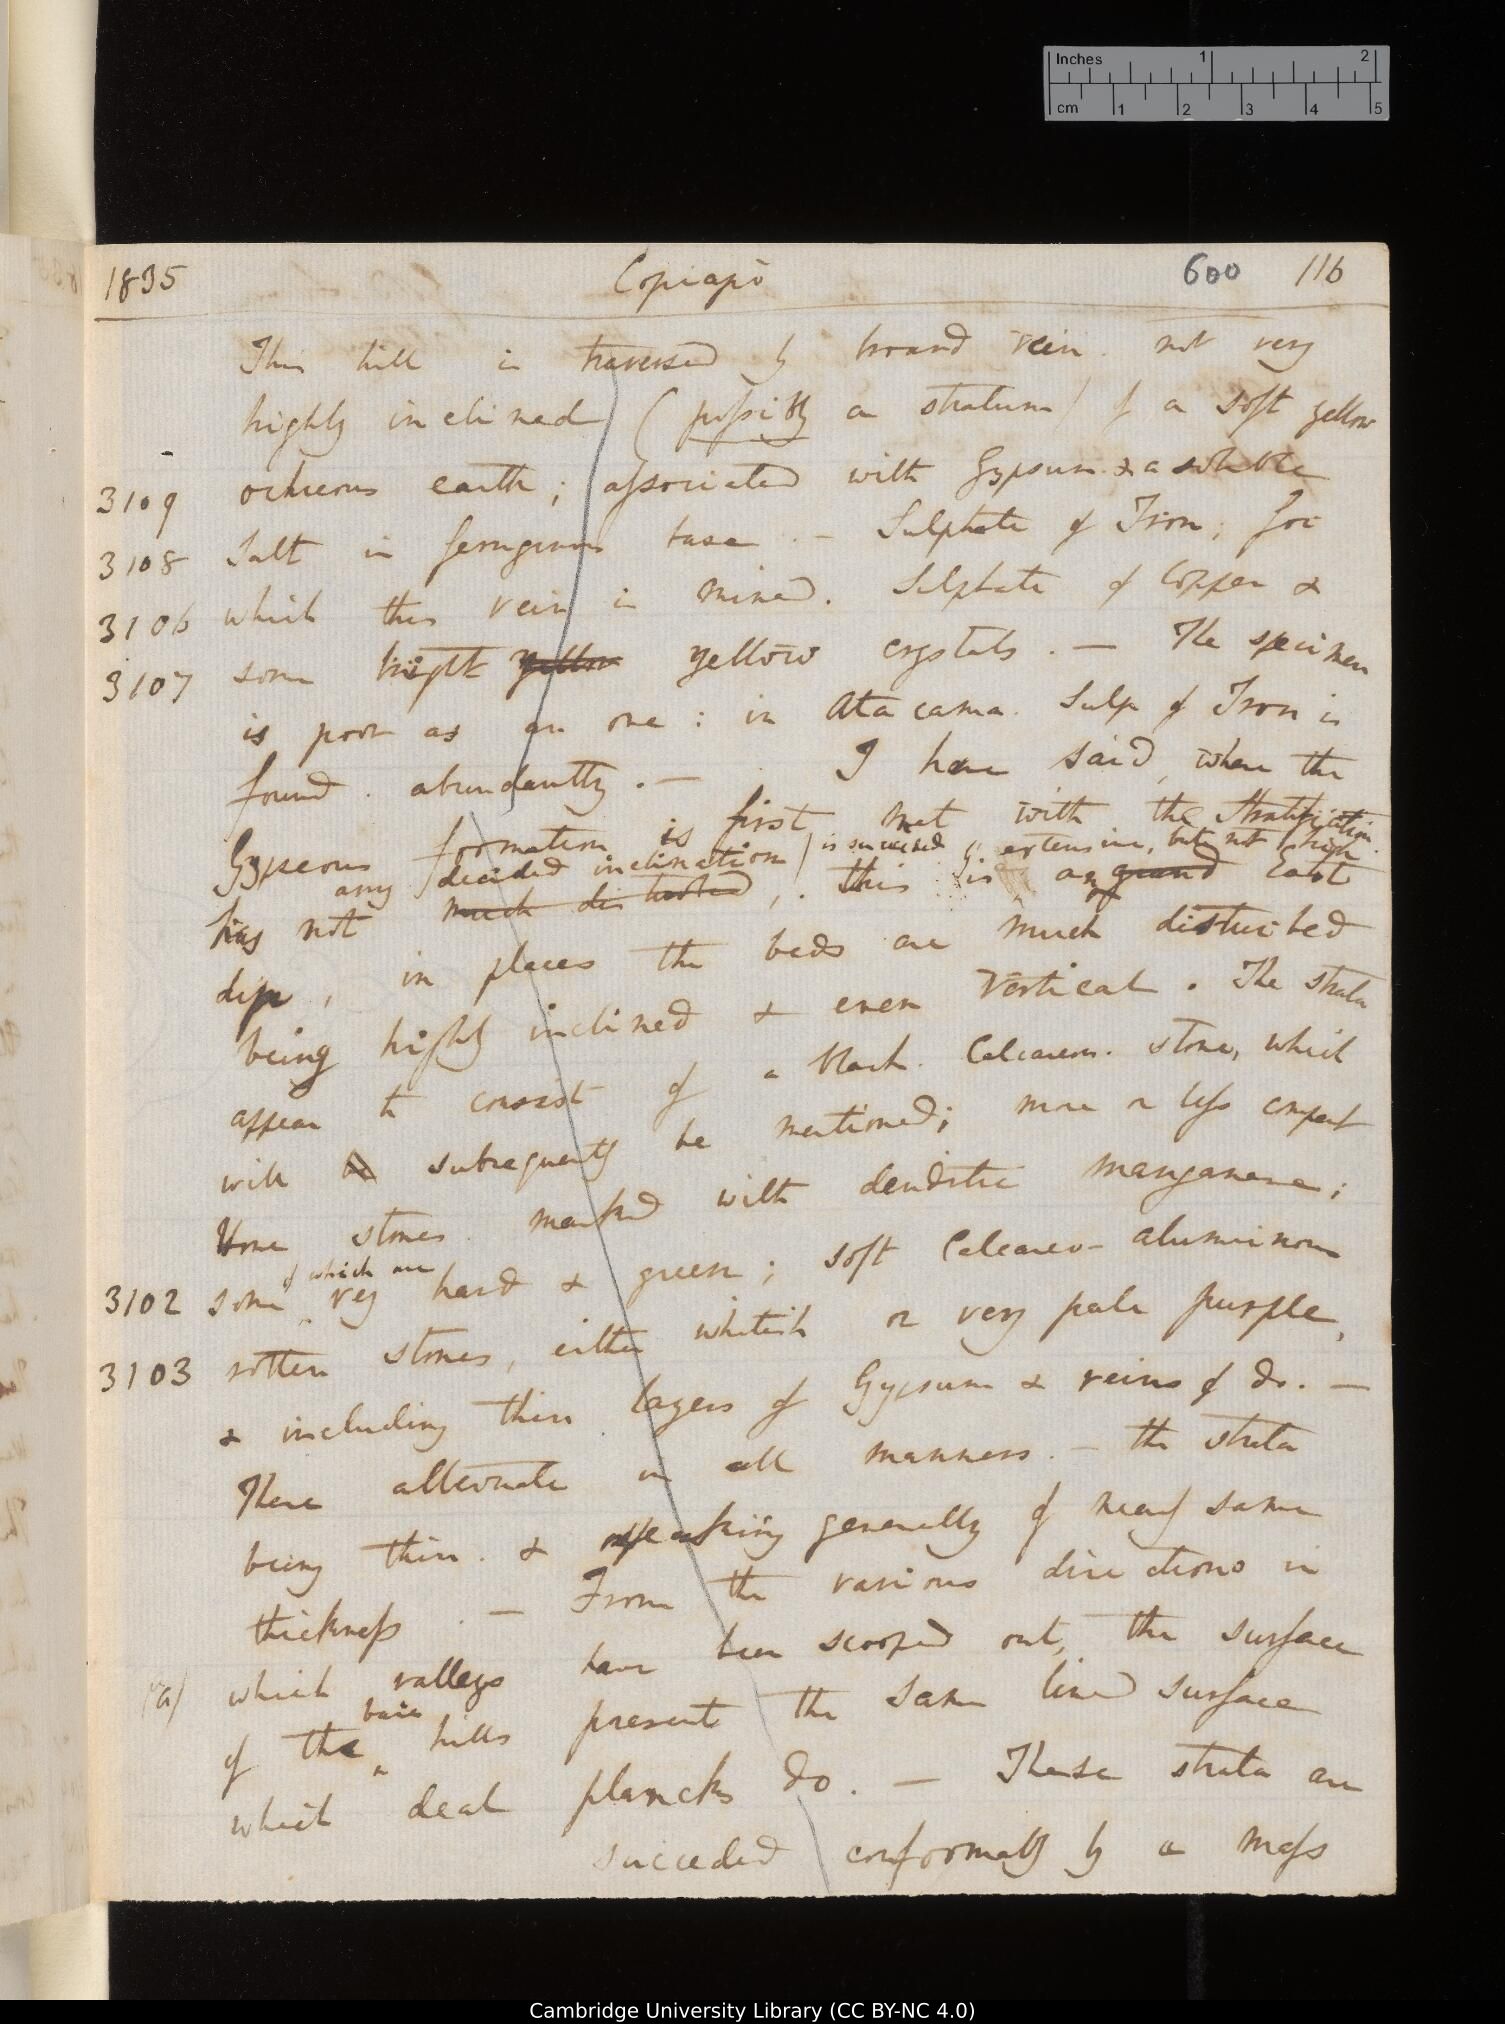 Inches 1 2
cm 1 2 3 4 5
1835 Copiapò 600 116
This hill is traversed by broard vein. not very
highly inclined (possibly a stratum) of a soft yellow
3109 ochreous earth; associated with Gypsum & a soluble
3108 Salt in ferruginous base. — Sulphate of Iron; for
3106 which this vein is mined. Sulphate of Copper &
3107 some bright yellow yellow crystals. — The specimen
is poor as an one: in Atacama. Sulp of Iron is
found. abundantly. — I have said, where the
Gypseous formation is first met with the Stratification
any decided inclination) is succeeded by extensive, but not high
has not much disturbed, . this is an grand East
dip, in places the beds are much disturbed
being highly inclined & even vertical. The strata
appear to consist of a black. Calcareous. stone, which
will be subsequently be mentioned; more or less compact
Hone stones. marked with dendritic manganese;
of which are
3102 some very hard & green; soft Calcareo-aluminous
3103 rotten stones, either whitish or very pale purple,
& including thin layers of Gypsum & veins of do. —
These alternate in all manners. — the strata
being thin. & speaking generally of nearly same
thickness. — From the various directions in
(a) which valleys have been scooped out, the surface
bare
of the hills present the same lined surface
which deal plancks do. — These strata are
succeded conformably by a mass
Cambridge University Library (CC BY-NC 4.0)